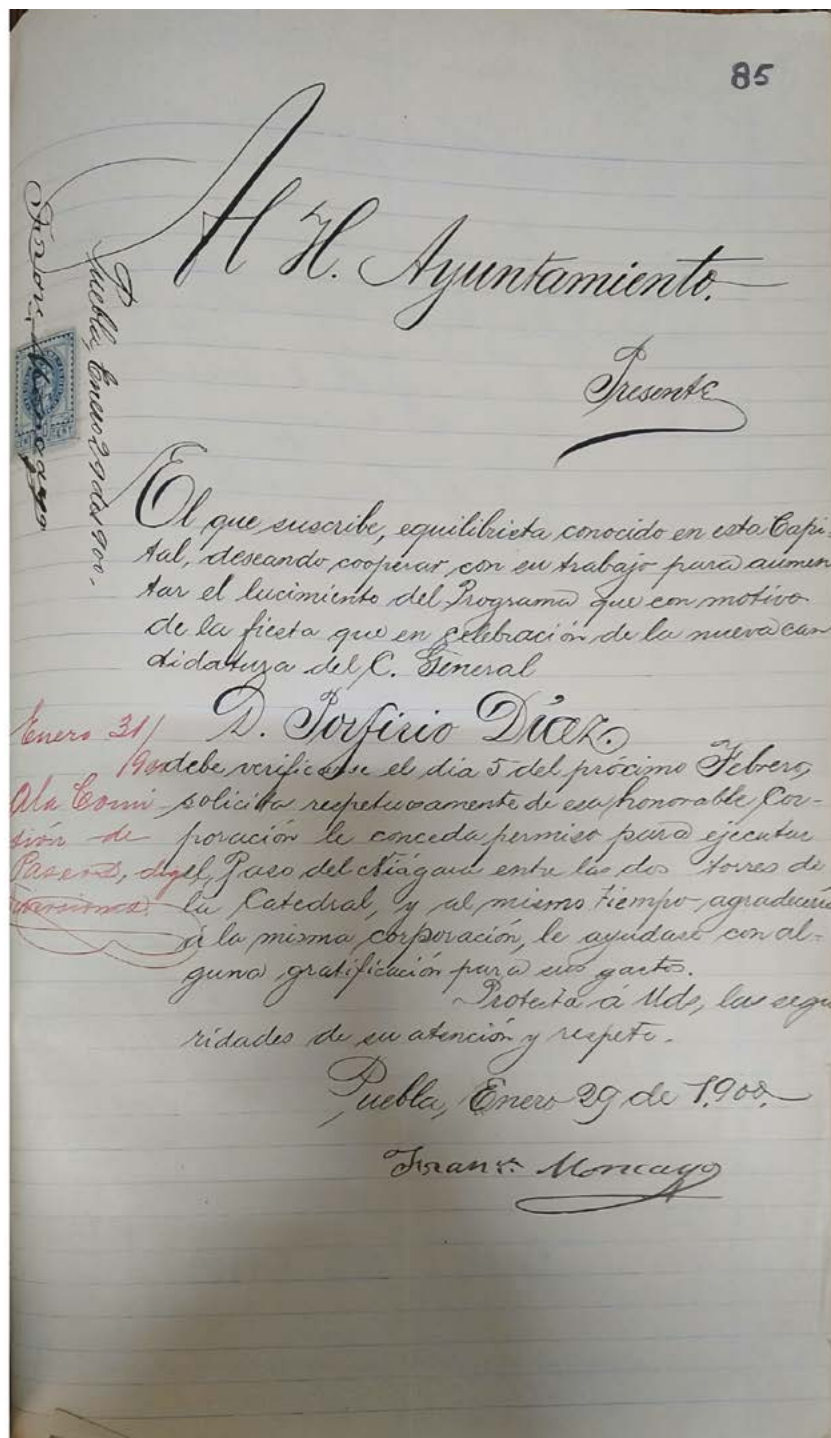 85
Al H. Ayuntamiento.
Presente
Puebla, Enero 29 de 1900.
Franco. Moncayo
El que suscribe, equilibrista conocido en esta Capi-
tal, deseando cooperar con su trabajo para aumen
tar el lucimiento del Programa que con motivo
de la fiesta que en celebración de la nueva can
didatura del C. General
D. Porfirio Díaz.
debe verificarse el dia 5 del próximo Febrero,
solicita respetuosamente de esa honorable Cor-
poración le conceda permiso para ejecutar
el Paso del Niágara entre las dos torres de
la Catedral, y al mismo tiempo agradecería
á la misma corporación, le ayudase con al-
guna gratificación para sus gastos.
Protesta á Uds, las segu
ridades de su atención y respeto.
Puebla, Enero 29 de 1.900.
Franco. Moncayo
Enero 31/
900
A la Comi
sión de
Paseos, di
versiones.